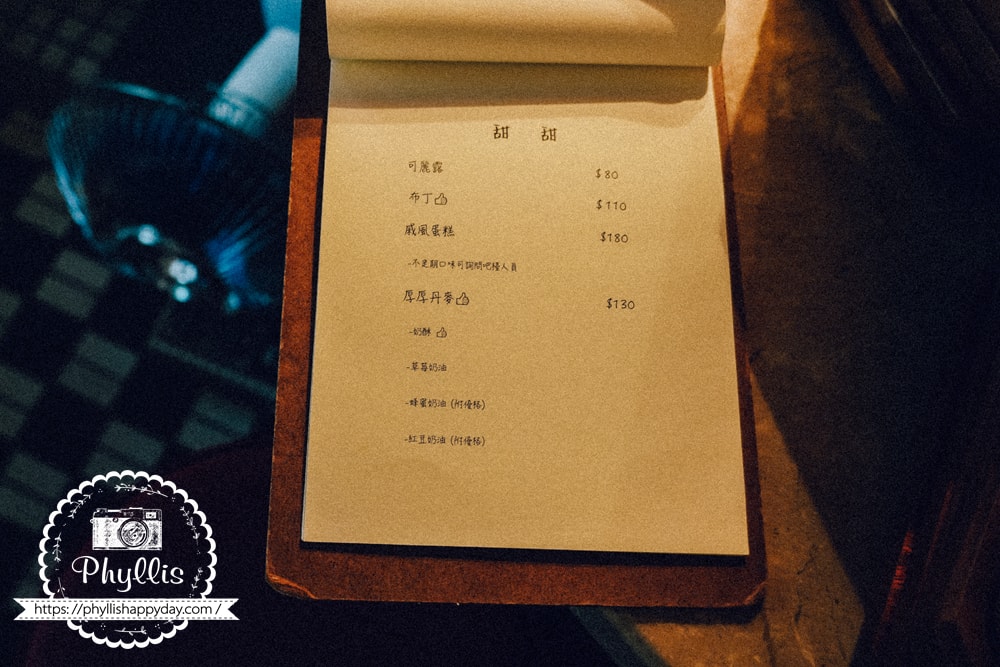 甜 甜
可麗露 $80
布丁 $110
戚風蛋糕 $180
-不定期口味可詢問吧檯人員
厚厚丹麥 $130
-奶酥
-草莓奶油
-蜂蜜奶油 (附優格)
-紅豆奶油 (附優格)
Phyllis
https://phyllishappyday.com /